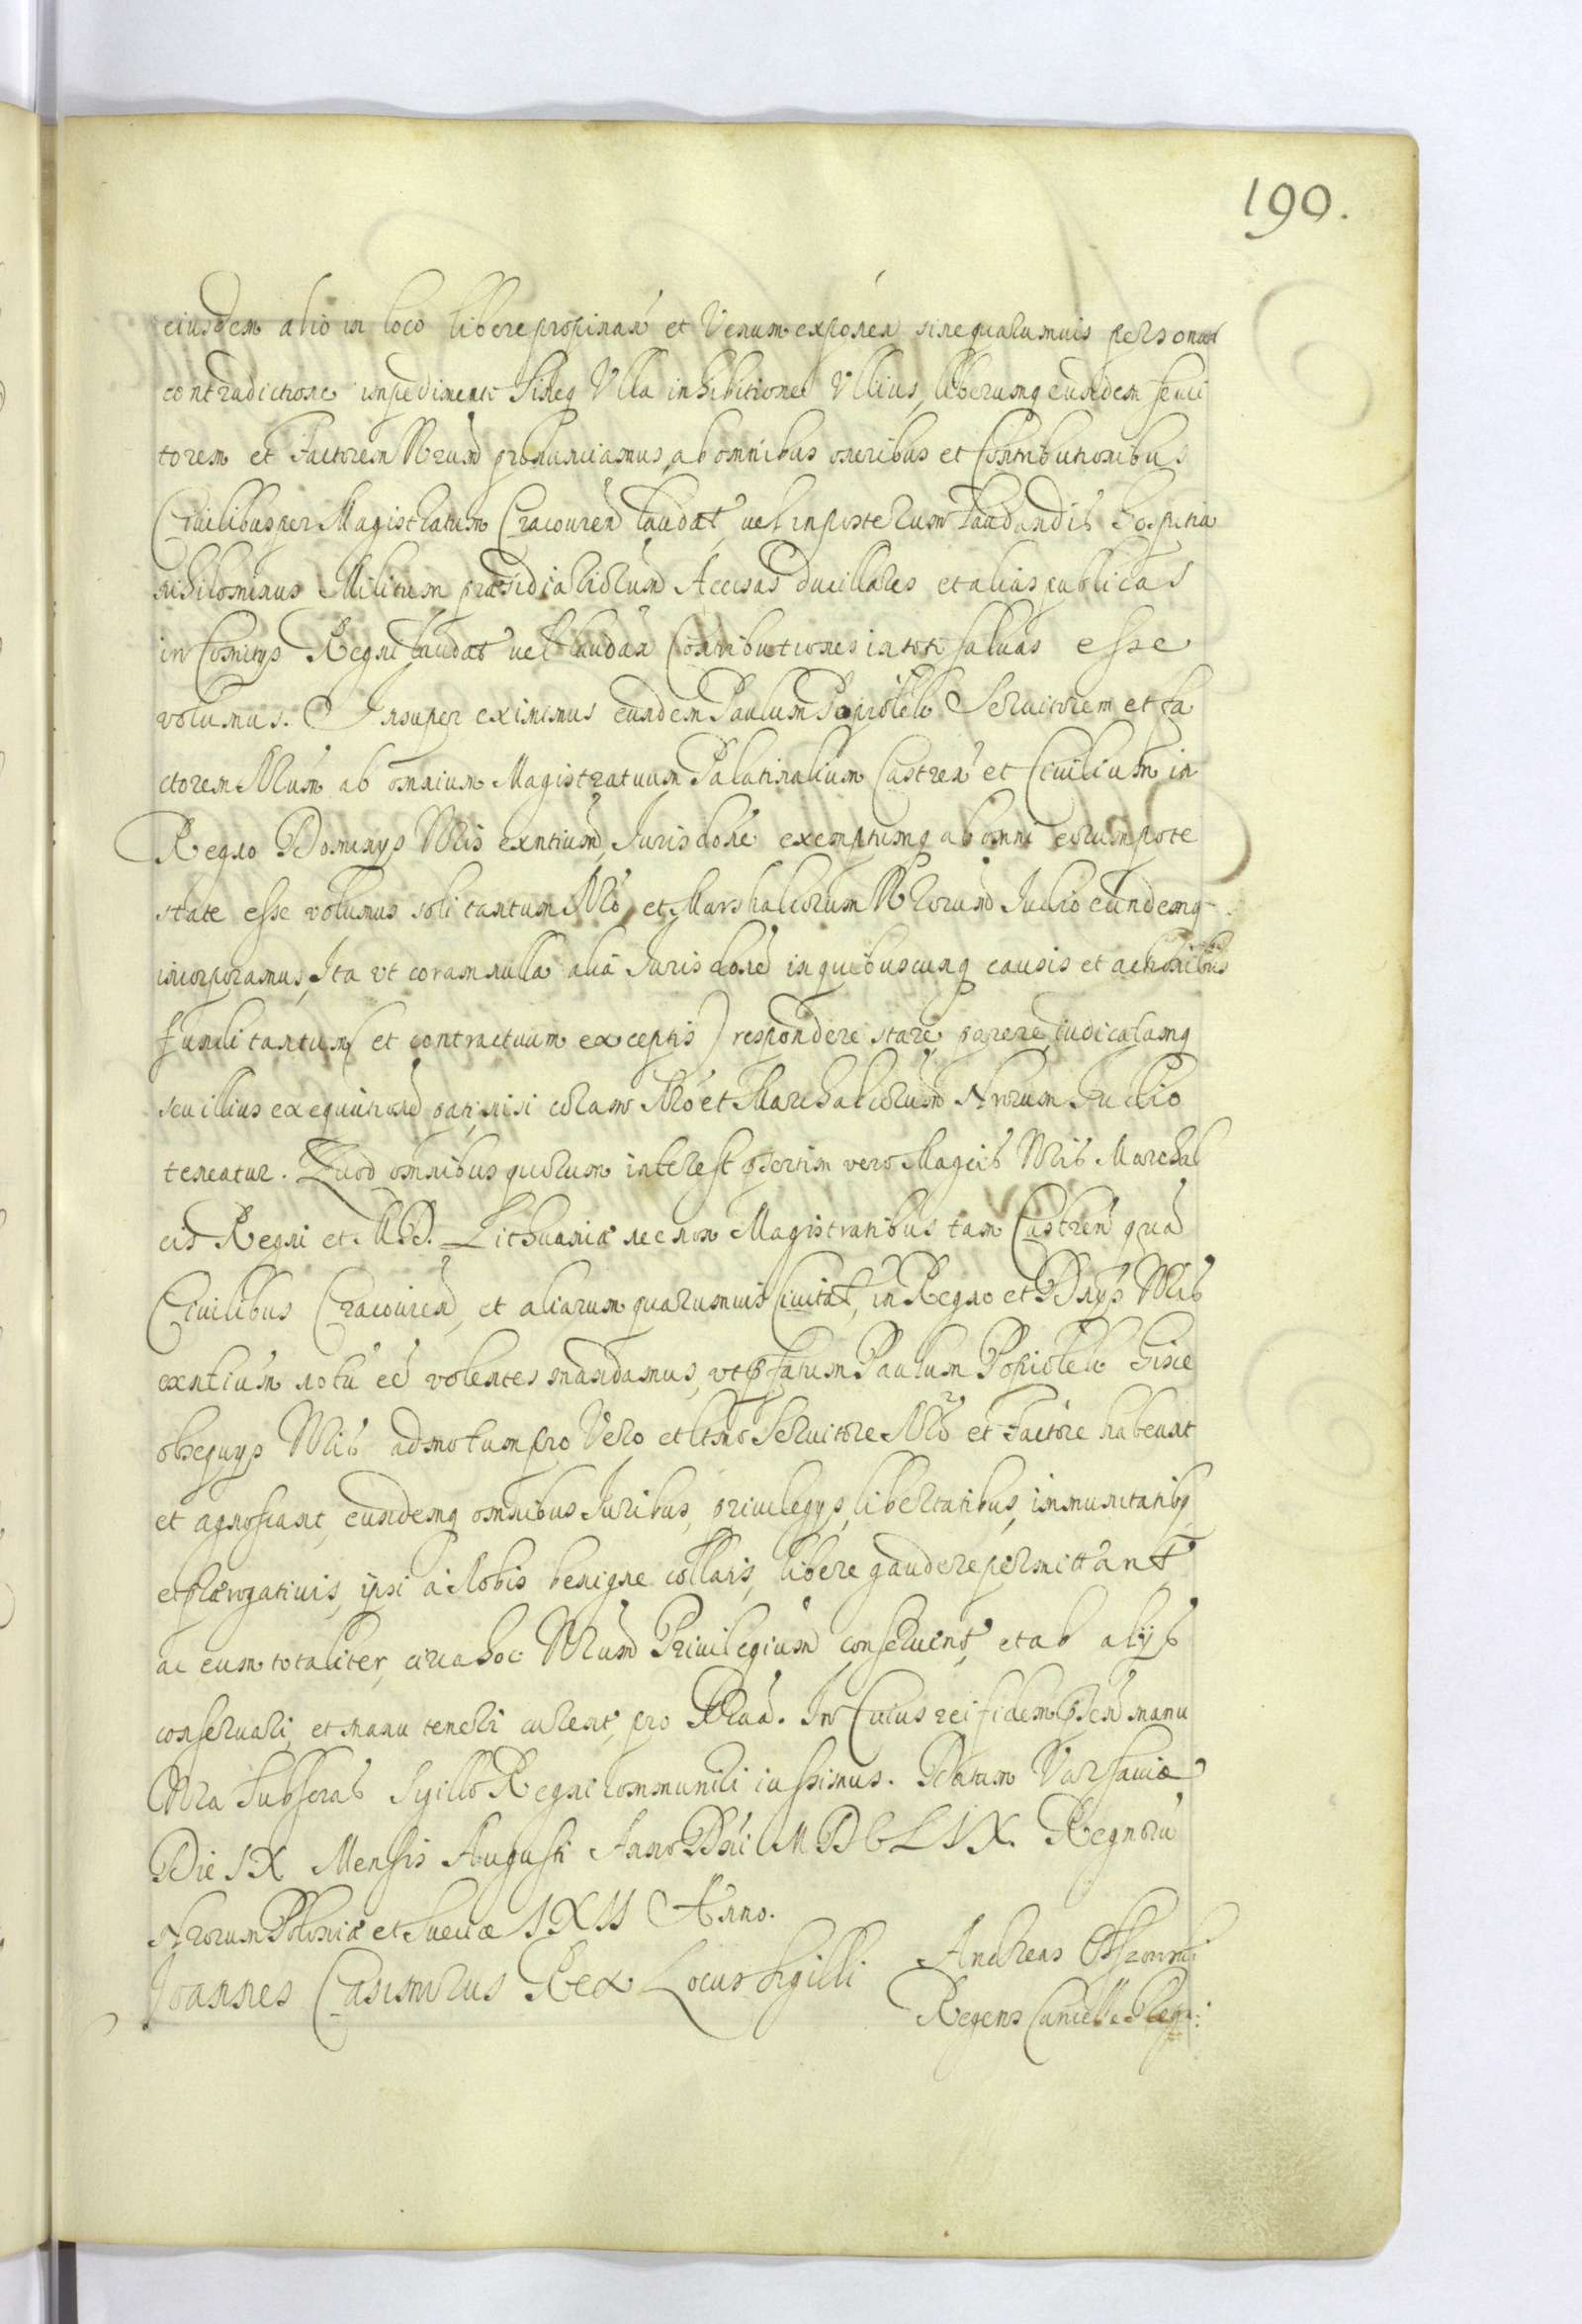 190.
eiusdem alio in loco libere propinan et Venum exponen sine quarumuis personar
contradictione impedimento sineq Vlla inhibitione Vllius, liberumq eundem serui
torem et Factorem Nrum pronunciamus, ab omnibus oneribus et Contributionibus
Ciuilibus per Magistratum Cracouien laudat, uel in posterum laudandis hospitia
nihilominus Militum praesidiariorum Accisas ducillares et alias publicas
in Comitys Regni laudat uel laudan Contributiones in toto saluas esse
volumus. Insuper eximimus eundem Paulum Popiolek Seruitorem et Fa
ctorem Nrum ab omnium Magistratuum Palatinalium Castren et Ciuilium in
Regno Dominys Nris exntium, Jurisdone exemptumq ab omni eorum pote
state esse volumus soli tantum Nro et Marshalcorum Nrorum Judio eundemq
incorporamus, Ita vt coram nulla alia Jurisdone in quibuscunq causis et actionibus
(fundi tantum et contractuum exceptis) respondere stare parere, iudicatamq
seu illius exequutione pati, nisi coram Nro et Marchalcorum Nrorum Judio
teneatur. Quod omnibus quorum interest psertim vero Magcis Nris Marchal
cis Regni et M. D. Lithuaniae nec non Magistratibus tam Castren qua
Ciuilibus Cracouien, et aliarum quarumuis Ciuitat, in Regno et Dnys Nris
exntium notu ee volentes mandamus, vt pfatum Paulum Popiolek hisce
obsequys Nris admotum pro Vero et ltmo Seruitore Nro et Factore habeant
et agnoscant, eundemq omnibus Juribus, priuilegys, libertatibus, immunitatibq
et praerogatiuis, ipsi a Nobis benigne collatis, libere gaudere permittant
ac eum totaliter, circa hoc Nrum Priuilegium conseruent, et ab alys
conseruari, et manu teneri curent, pro Gra. In Cuius rei fidem psen manu
Nra Subscras Sigillo Regni communiri iussimus. Datum Varsauiae
Die IX Mensis Augusti Anno Dni MDCLIX. Regnoru
Nrorum Poloniae et Sueciae IXII Anno.
Joannes Casimirus Rex Locus Sigilli Andreas
Regens Cancell